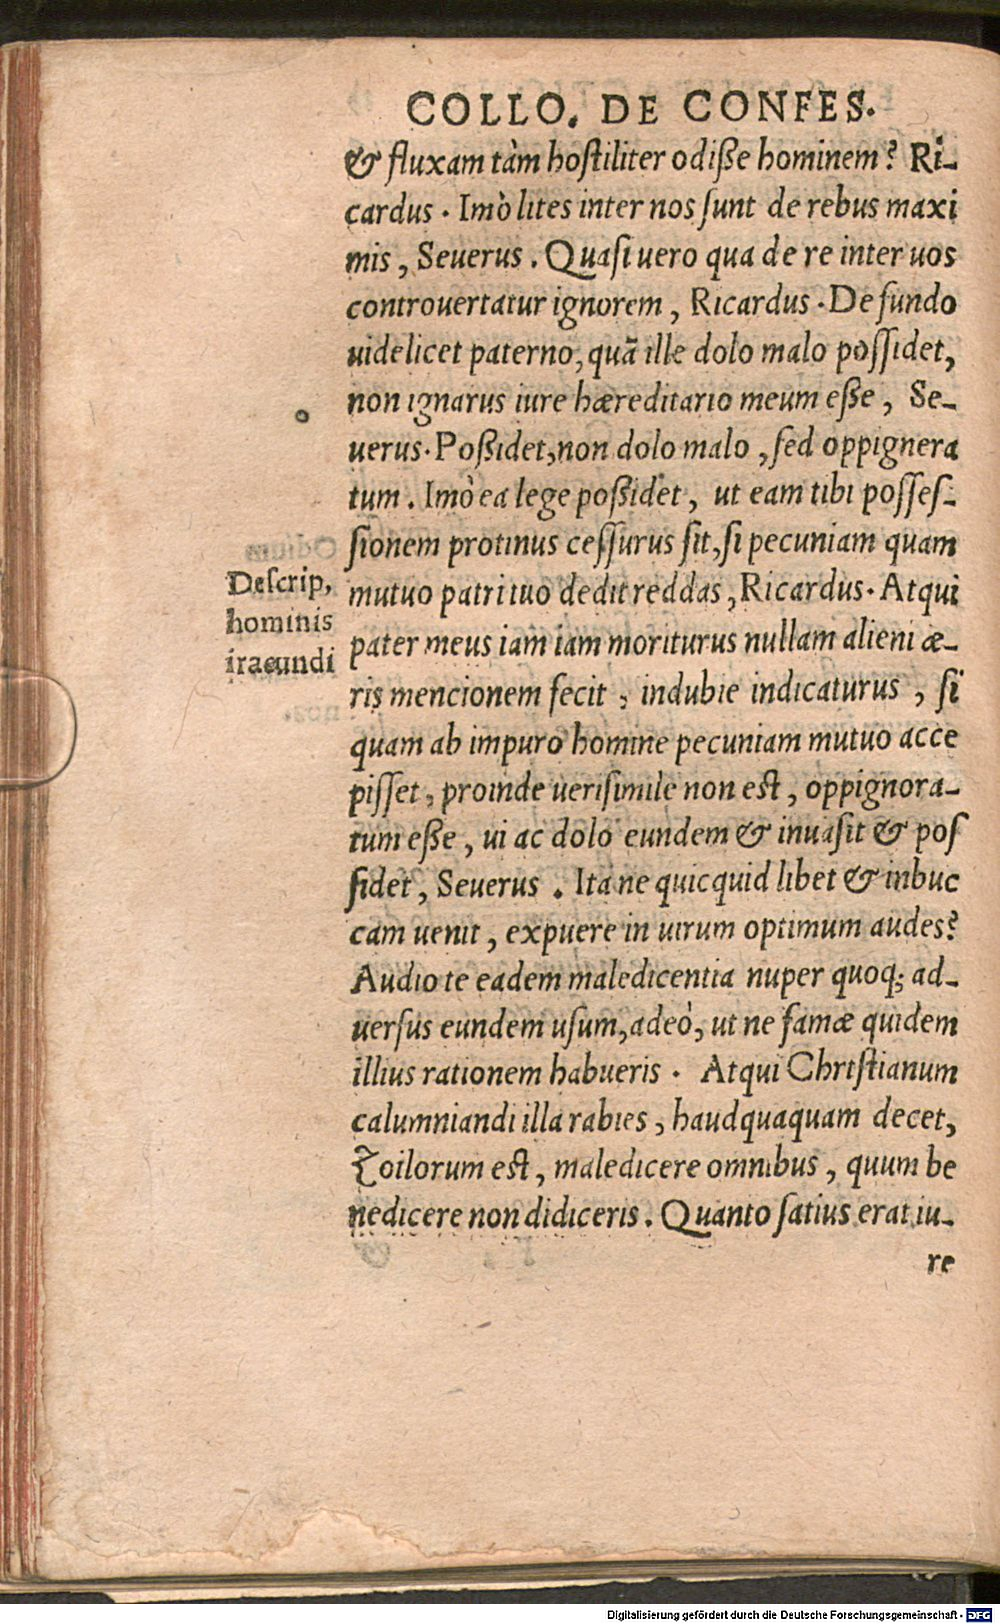 COLLO. DE CONFES.
& fluxam tàm hoſtiliter odiße hominem? Ri-
cardus. Imò lites inter nos ſunt de rebus maxi
mis, Seuerus. Quaſi uero qua de re inter uos
controuertatur ignorem, Ricardus. De fundo
uidelicet paterno, quã ille dolo malo poſſidet,
non ignarus iure hæreditario meum eße, Se-
uerus. Poßidet, non dolo malo, ſed oppignera
tum. Imò ea lege poßidet, ut eam tibi poſſeſ-
ſionem protinus ceſſurus ſit, ſi pecuniam quam
mutuo patri tuo dedit reddas, Ricardus. Atqui
pater meus iam iam moriturus nullam alieni æ-
ris mencionem fecit, indubie indicaturus, ſi
quam ab impuro homine pecuniam mutuo acce
piſſet, proinde ueriſimile non eſt, oppignora-
tum eße, ui ac dolo eundem & inuaſit & poſ
ſidet, Seuerus. Itane quicquid libet & in buc
cam uenit, expuere in uirum optimum audes?
Audio te eadem maledicentia nuper quoq; ad-
uerſus eundem uſum, adeò, ut ne famæ quidem
illius rationem habueris. Atqui Chrtſtianum
calumniandi illa rabies, haudquaquam decet,
Zoilorum eſt, maledicere omnibus, quum be
nedicere non didiceris. Quanto ſatius erat iu-
re
Deſcrip,
hominis
iracundi
Digitalisierung gefördert durch die Deutsche Forschungsgemeinschaft - DFG